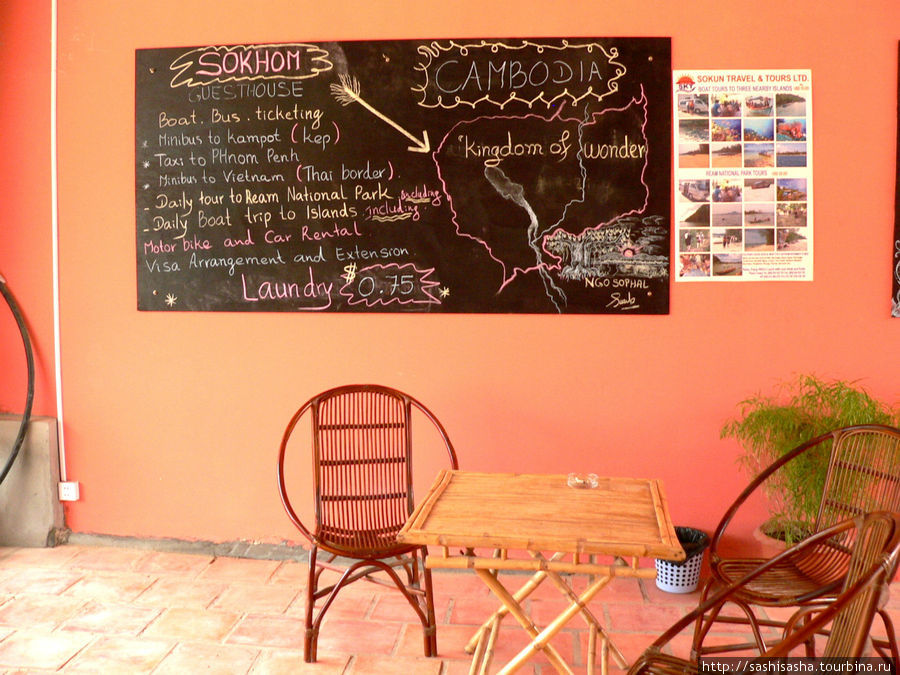 SOKHOM
GUESTHOUSE
Boat. Bus. ticketing
* Minibus to kampot (kep)
* Taxi to PHnom Penh
* Minibus to Vietnam (Thai border).
- Daily tour to Ream National Park
- Daily Boat trip to Islands including.
Motor bike and Car Rental
Visa Arrangement and Extension
Laundry $0.75
CAMBODIA
"kingdom of wonder
NGO SOPHAL
SOKUN TRAVEL & TOURS LTD.
BOAT TOURS TO THREE NEARBY ISLANDS
REAM NATIONAL PARK TOURS
http://sashisasha.tourbina.ru